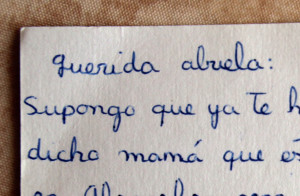 querida abuela:
Supongo que ya te h
dicho mamá que es